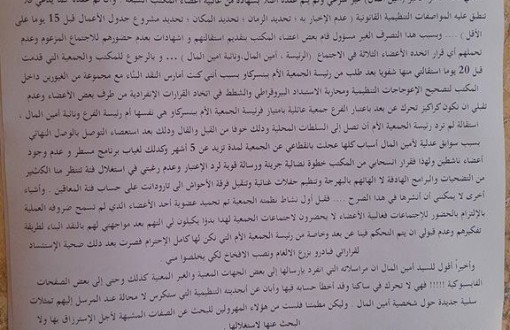 تنطبق عليه المواصفات التنظيمية القانونية ( عدم الإخبار به ؛ تحديد الزمان ؛ تحديد المكان ؛ تحديد مشروع جدول الأعمال قبل 15 يوما على
الأقل ) .... وبسبب هذا التصرف الغير مسؤول قام بعض أعضاء المكتب بتقديم استقالتهم و إشهادات بعدم حضورهم للاجتماع المزعوم وعدم
تحملهم أي قرار اتخذه الأعضاء الثلاثة في الاجتماع (الرئيسة ، أمين المال ونائبة أمين المال ) .... و بالرجوع للمكتب والجمعية التي قدمت
قبل 20 يوما استقالتي منها شفويا بعد طلب من رئيسة الجمعية الأم بنسركاو بسبب أنني كنت أمارس النقد البناء مع مجموعة من الغيورين داخل
المكتب لتصحيح الإعوجاجات التنظيمية ومحاربة الاستبداد البيروقراطي والشطط في اتخاذ القرارات الإنفرادية من طرف بعض الأعضاء وعدم
تقبلي أن نكون كراكيز تحرك عن بعد باعتبار الفرع جمعية عائلية بامتياز فرئيسة الجمعية الأم بنسركاو هي نفسها أم رئيسة الفرع ونائبة أمين المال ،
استقالة لم ترد رئيسة الجمعية الأم أن تصل إلى السلطات المحلية وذلك خوفا من القيل والقال وذلك بعد استعصاء التوصل بالوصل النهائي
بسبب سوابق عدلية لأمين المال أسباب كلها عجلت بانقطاعي عن الجمعية لمدة تزيد عن 5 أشهر وكذلك لغياب برنامج مسطر و عدم وجود
أعضاء ناشطين ولهذا فقرار انسحابي من المكتب خطوة نضالية جريئة ورسالة قوية لرد الإعتبار وعدم رغبتي في استغلال فئة تنتظر منا الكثير
من التضحيات والبرامج الهادفة لا إلهائهم بالبهرجة وتنظيم حفلات غنائية وتنقيل فرقة الأحواش الى تارودانت على حساب فئة المعاقين . وأشياء
أخرى لا يمكنني أن أنشرها في هذا الصرح .... فقبل أول نشاط نظمته الجمعية تم تجميد عضوية أحد الأعضاء الذي لم تسمح ظروفه العملية
بالإلتزام بالحضور للإجتماعات فغالبية الأعضاء لا يحضرون لاجتماعات الجمعية لهذا بدؤا يكيلون لي التهم بعد مواجهتي لهم بالنقد البناء لطريقة
تفكيرهم وعدم قبولي أن يتم التحكم فينا عن بعد وخاصة من رئيسة الجمعية الأم التي نكن لها كامل الإحترام فصرت بعد ذلك ضحية الإستبداد
لقراراتي فبادرو بزرع الألغام ونصب الأفخاخ لكي يخلصوا مني .
وأخيرا أقول للسيد أمين المال ان مراسلاته التي انفرد بإرسالها إلى بعض الجهات المعنية والغير المعنية كذلك وحتى إلى بعض الصفحات
الفايسبوكية !!!!! فهي لا تحرك في ساكنا وقد أخطأ حسابه فيها وأبان عن أبجديته التنظيمية التي ستكرس لا محالة عند المرسل إليهم تمثلات
سلبية جديدة حول شخصية أمين المال . وليكن مطمئنا فلست من هؤلاء المهرولين للبحث عن الصفات المشبهة لأجل الإسترزاق بها ولا
البحث عنها لاستغلالها .